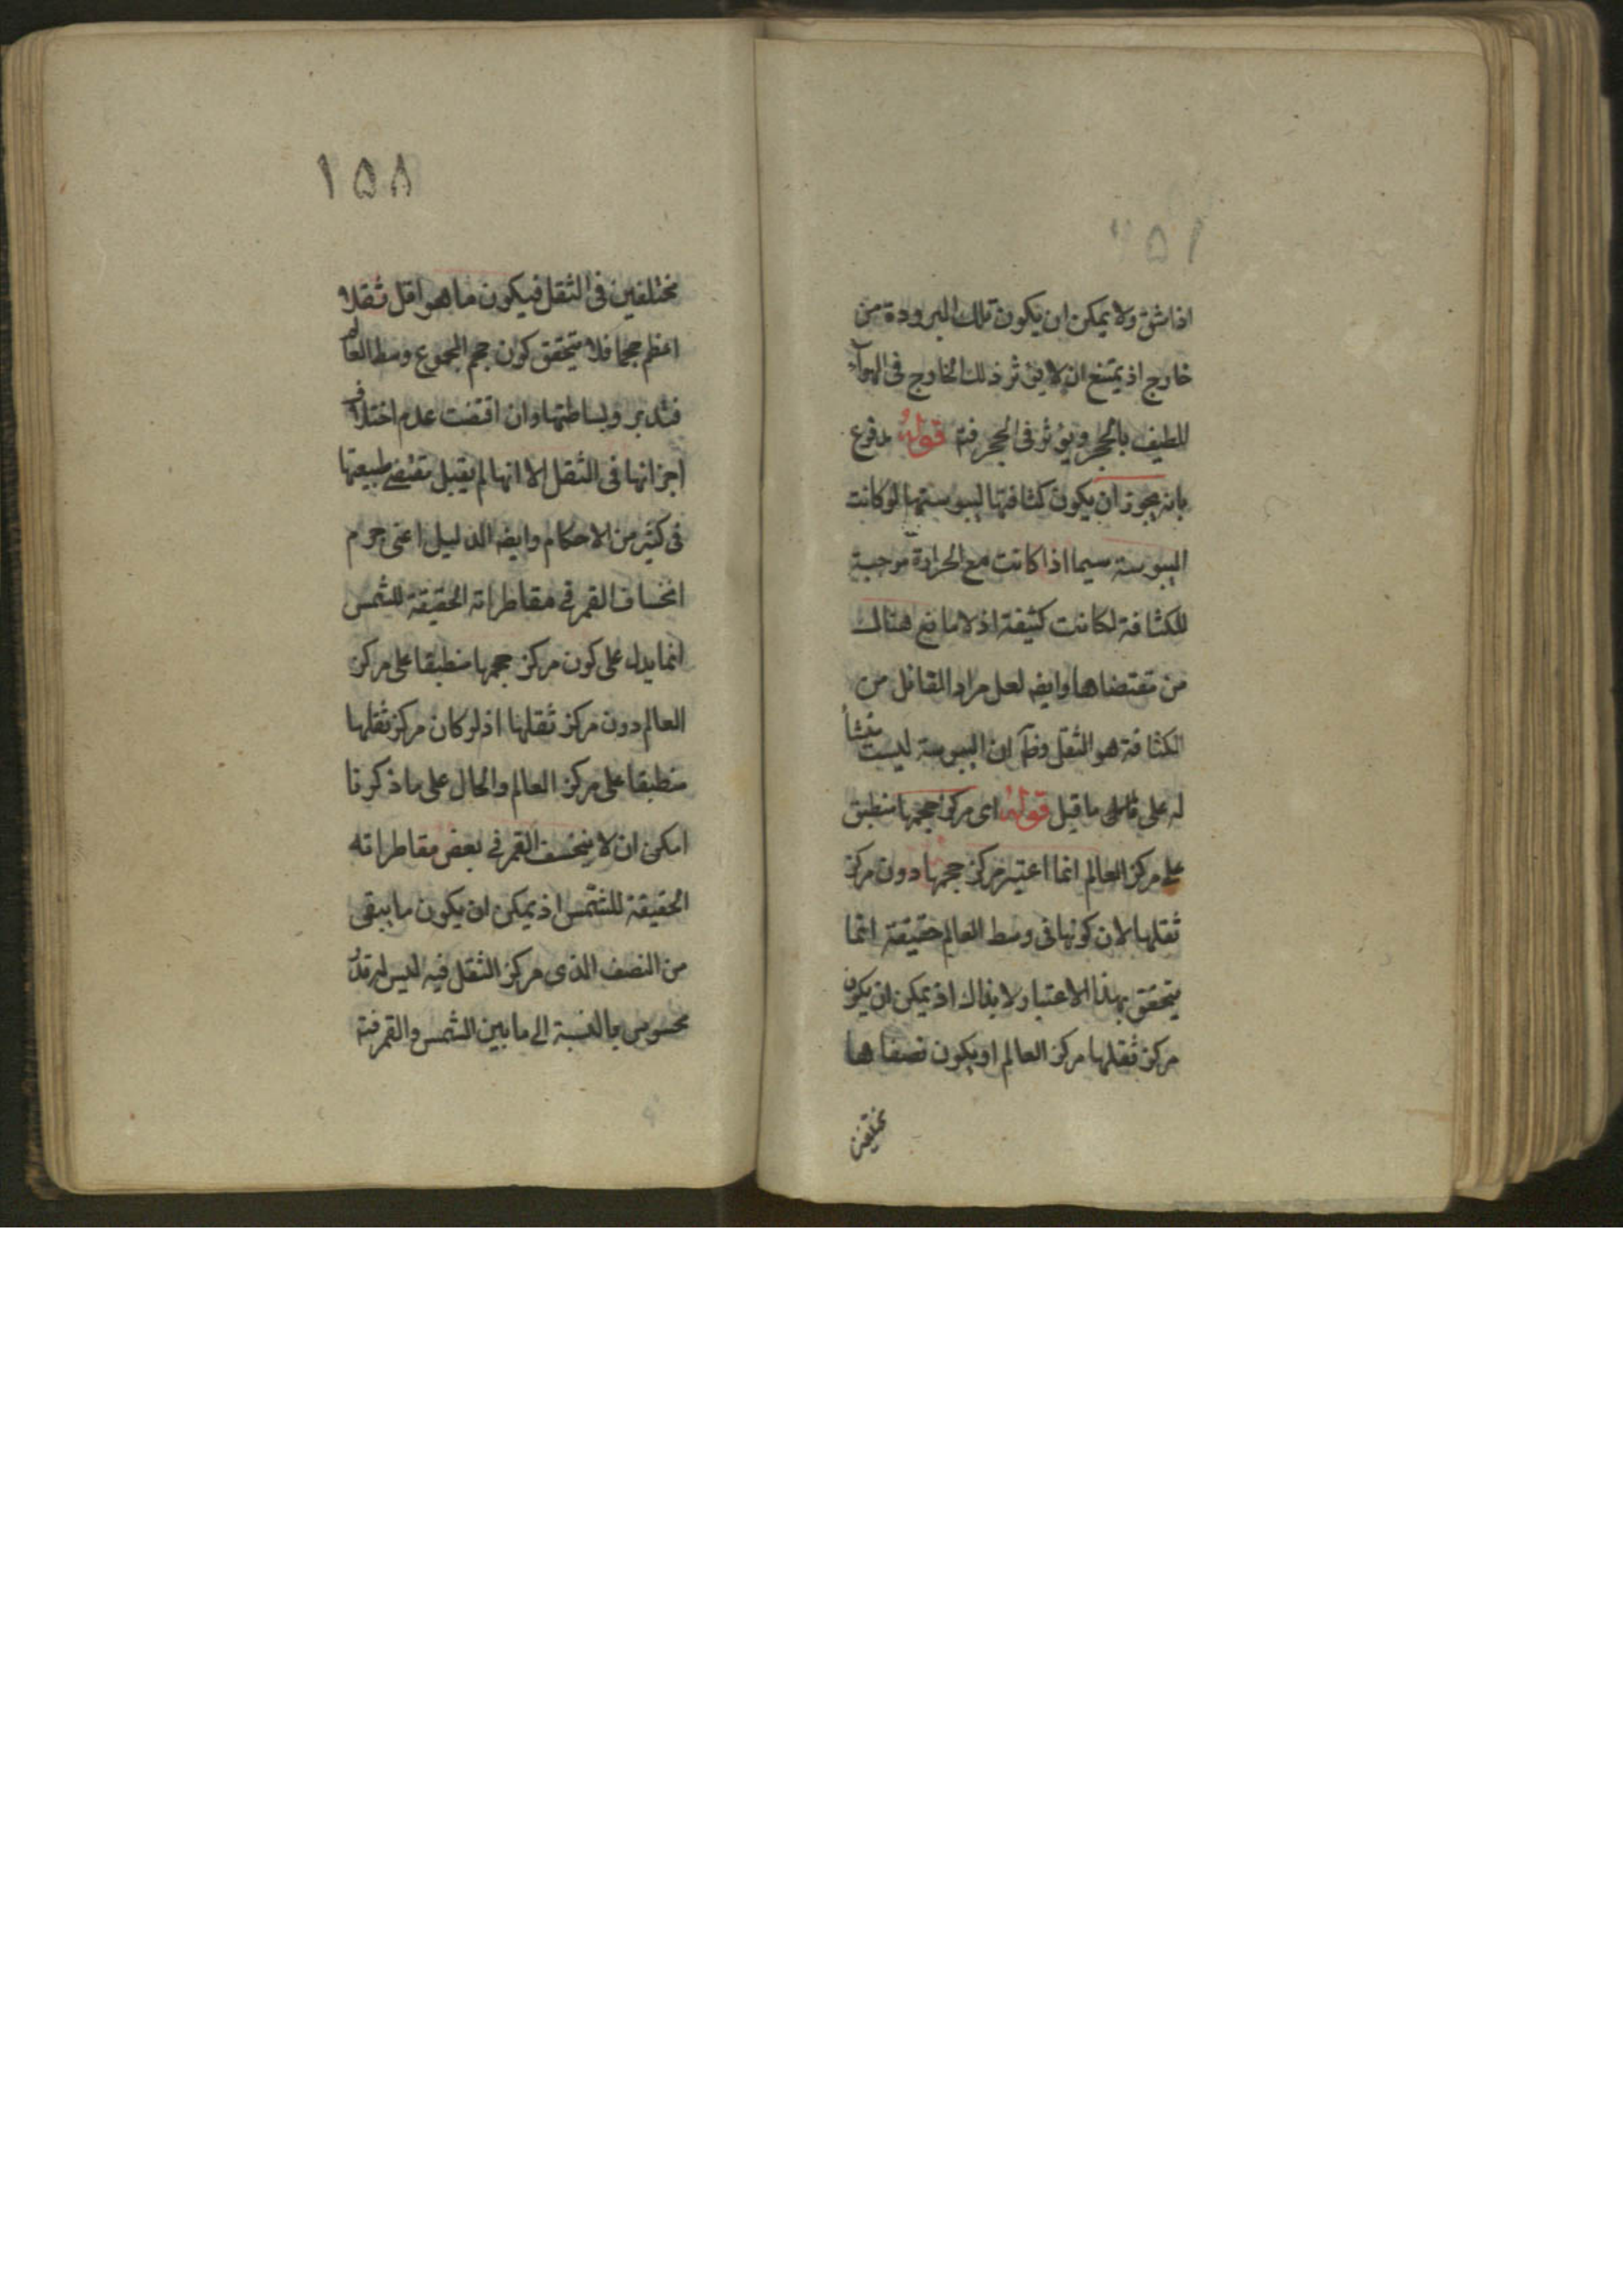 اذا شق ولا يمكن ان يكون تلك البرودة من
خارج اذ يمتنع ان لا يؤثر ذلك الخارج فى الهوآء
اللطيف بالحجر ويؤثر فى الحجر فته قوله مدفوع
بانه يجوز ان يكون كثافتها ليبوستها لو كانت
اليبوسة سيما اذا كانت مع الحرارة موجبة
للكثافة لكانت كثيفة اذ لا مانع هناك
من مقتضاها وايضه لعل مراد القائل من
الكثافة هو الثقل وظآ ان اليبوسة ليست منشأ
له على ما قيل قوله اى مركز حجمها منطبق
على مركز العالم انما اعتبر مركز حجمها دون مركز
ثقلها لان كونها فى وسط العالم حقيقة انما
يتحقق بهذا الاعتبار ولا بذاك اذ يمكن ان يكون
مركز ثقلها مركز العالم او يكون نصفاها
مختلفين
١٥٨
مختلفين فى الثقل فيكون ما هو اقل ثقلا
اعظم حجما فلا يتحقق كون حجم المجموع وسط العالم
فتدبر وبساطتها وان اقتضت عدم اختلاف
اجزائها فى الثقل الا انها لم يقبل مقتضى طبيعتها
فى كثير من الاحكام وايضه الدليل اعنى
انخساف القمر فى مقاطراته الحقيقة للشمس
انما يدل على كون مركز حجمها منطبقا على مركز
العالم دون مركز ثقلها اذ لو كان مركز ثقلها
منطبقا على مركز العالم والحال على ما ذكرنا
امكن ان لا ينخسف القمر فى بعض مقاطراته
الحقيقة للشمس اذ يمكن ان يكون ما بقى
من النصف الذى مركز الثقل فيه ليس له قدر
محسوس بالنسبة الى ما بين الشمس والقمر فته